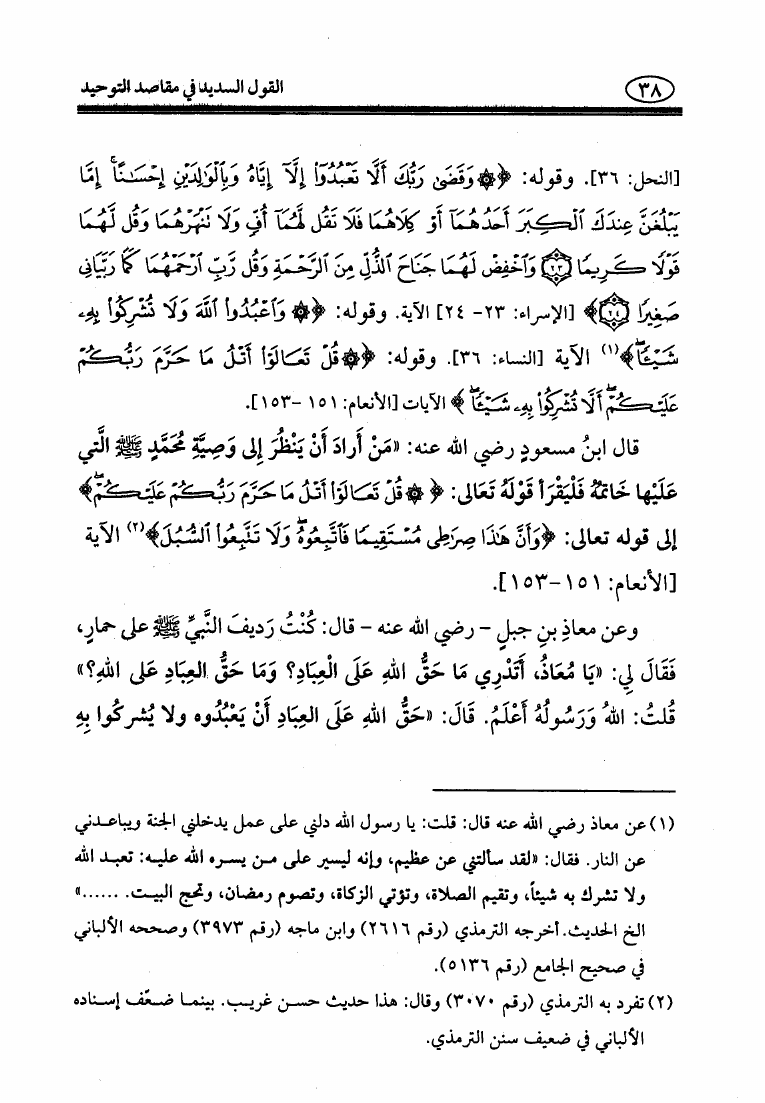 ٣٨
القول السديد في مقاصد التوحيد
[النحل: ٣٦]. وقوله: ﴿۞ وَقَضَىٰ رَبُّكَ أَلَّا تَعْبُدُوٓا۟ إِلَّآ إِيَّاهُ وَبِٱلْوَٰلِدَيْنِ إِحْسَٰنًا ۚ إِمَّا
يَبْلُغَنَّ عِندَكَ ٱلْكِبَرَ أَحَدُهُمَآ أَوْ كِلَاهُمَا فَلَا تَقُل لَّهُمَآ أُفٍّ وَلَا تَنْهَرْهُمَا وَقُل لَّهُمَا
قَوْلًا كَرِيمًا ﴿٢٣﴾ وَٱخْفِضْ لَهُمَا جَنَاحَ ٱلذُّلِّ مِنَ ٱلرَّحْمَةِ وَقُل رَّبِّ ٱرْحَمْهُمَا كَمَا رَبَّيَانِى
صَغِيرًا ﴿٢٤﴾﴾ [الإسراء: ٢٣- ٢٤] الآية. وقوله: ﴿۞ وَٱعْبُدُوا۟ ٱللَّهَ وَلَا تُشْرِكُوا۟ بِهِۦ
شَيْـًٔا ۖ﴾(١) الآية [النساء: ٣٦]. وقوله: ﴿۞ قُلْ تَعَالَوْا۟ أَتْلُ مَا حَرَّمَ رَبُّكُمْ
عَلَيْكُمْ ۖ أَلَّا تُشْرِكُوا۟ بِهِۦ شَيْـًٔا ۖ﴾ الآيات [الأنعام: ١٥١ -١٥٣].
قال ابنُ مسعودٍ رضي الله عنه: «مَنْ أَرادَ أَنْ يَنْظُرَ إِلى وَصِيَّةِ مُحَمَّدٍ ﷺ الَّتي
عَلَيْها خَاتَمُهُ فَلْيَقْرَأ قَوْلَهُ تَعَالى: ﴿۞ قُلْ تَعَالَوْا۟ أَتْلُ مَا حَرَّمَ رَبُّكُمْ عَلَيْكُمْ ۖ﴾
إلى قوله تعالى: ﴿وَأَنَّ هَٰذَا صِرَٰطِى مُسْتَقِيمًا فَٱتَّبِعُوهُ ۖ وَلَا تَتَّبِعُوا۟ ٱلسُّبُلَ﴾(٢) الآية
[الأنعام: ١٥١-١٥٣].
وعن معاذِ بنِ جبلٍ - رضي الله عنه - قال: كُنْتُ رَديفَ النَّبيِّ ﷺ على حمارٍ،
فَقَالَ لِي: «يَا مُعَاذُ، أَتَدْرِي مَا حَقُّ اللهِ عَلَى الْعِبَادِ؟ وَمَا حَقُّ العِبَادِ عَلى اللهِ؟»
قُلتُ: اللهُ وَرَسُولُهُ أَعْلَمُ. قَالَ: «حَقُّ اللهِ عَلَى العِبَادِ أَنْ يَعْبُدُوه ولا يُشركُوا بِهِ
(١) عن معاذ رضي الله عنه قال: قلت: يا رسول الله دلني على عمل يدخلني الجنة ويباعدني
عن النار. فقال: «لقد سألتني عن عظيم، وإنه ليسير على من يسره الله عليه: تعبد الله
ولا تشرك به شيئاً، وتقيم الصلاة، وتؤتي الزكاة، وتصوم رمضان، وتحج البيت. ......»
الخ الحديث. أخرجه الترمذي (رقم ٢٦١٦) وابن ماجه (رقم ٣٩٧٣) وصححه الألباني
في صحيح الجامع (رقم ٥١٣٦).
(٢) تفرد به الترمذي (رقم ٣٠٧٠) وقال: هذا حديث حسن غريب. بينما ضعّف إسناده
الألباني في ضعيف سنن الترمذي.